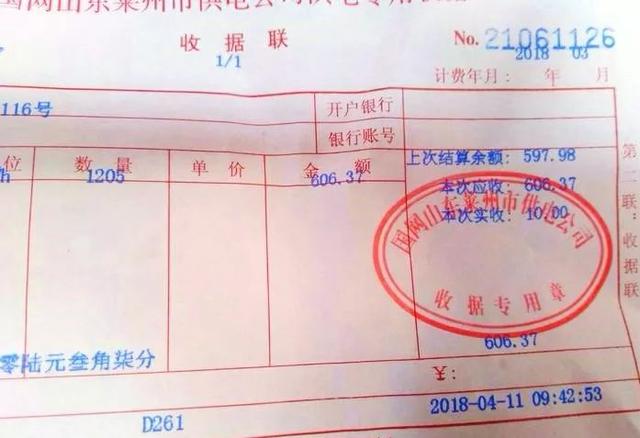 国网山东莱州市供电公司供电专用
收据联
No. 21061126
1/1
2018 03
计费年月： 年 月
116号
开户银行
银行账号
位 数量 单价 金额
h 1205 606.37
上次结算余额: 597.98
本次应收: 606.37
本次实收: 10.00
国网山东莱州市供电公司
收据专用章
606.37
零陆元叁角柒分
D261
2018-04-11 09:42:53
第二联：收据联